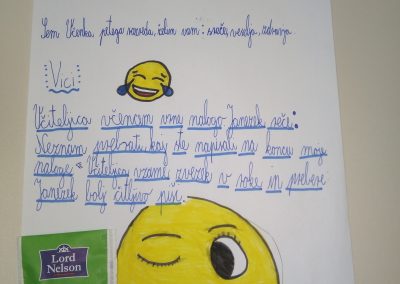 Sem Učenka petega razreda, želim vam: sreče, veselja, zdravja.
Vici
Učiteljica učencem vrne nalogo Janezek reče:
Neznam prebrati kaj ste napisali na koncu moje
naloge" Učiteljica vzame zvezek v roke in prebere
Janezek bolj čitljivo piši.
Lord
Nelson